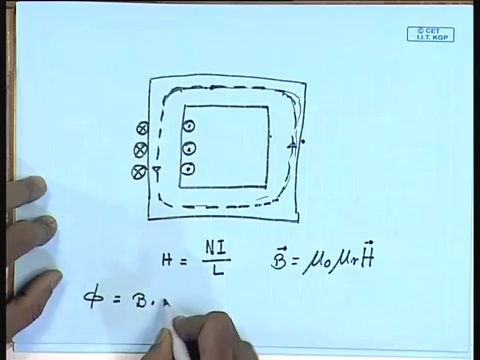 © CET
I.I.T. KGP
H = NI / L
B⃗ = μ₀ μr H⃗
ϕ = B.